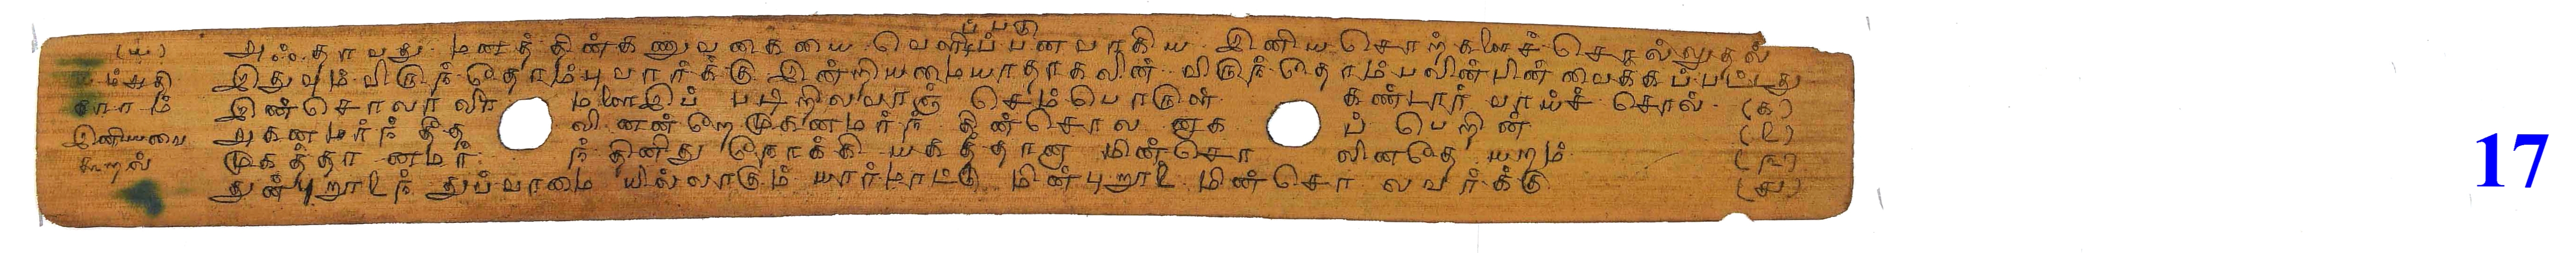 ப்படு
(ய) அஃதாவது மனத்தின்கணுவகையை வெளிப்பனவாகிய இனியசொற்களைச்சொல்லுதல்
ய ம் அதி இதுவும் விருந்தோம்புவார்க்கு இன்றியமையாதாகலின் விருந்தோம்பலின்பின் வைக்கப்பட்டது
காரம் இன்சொலாலீர மளைஇப் படிறிலவாஞ் செம்பொருள் கண்டார் வாய்ச் சொல் (க)
இனியவை அகனமர்ந் தீத லினன்றே முகனமர்ந் தின்சொல னுகப் பெறின் (உ)
கூறல் முகத்தா னமர்ந் தினிது நோக்கி யகத்தானு மின்சொ லினதே யறம் (ந)
துன்புறூஉந் துவ்வாமை யில்லாகும் யார்மாட்டு மின்புறூஉ மின்சொ லவர்க்கு (ச)
17